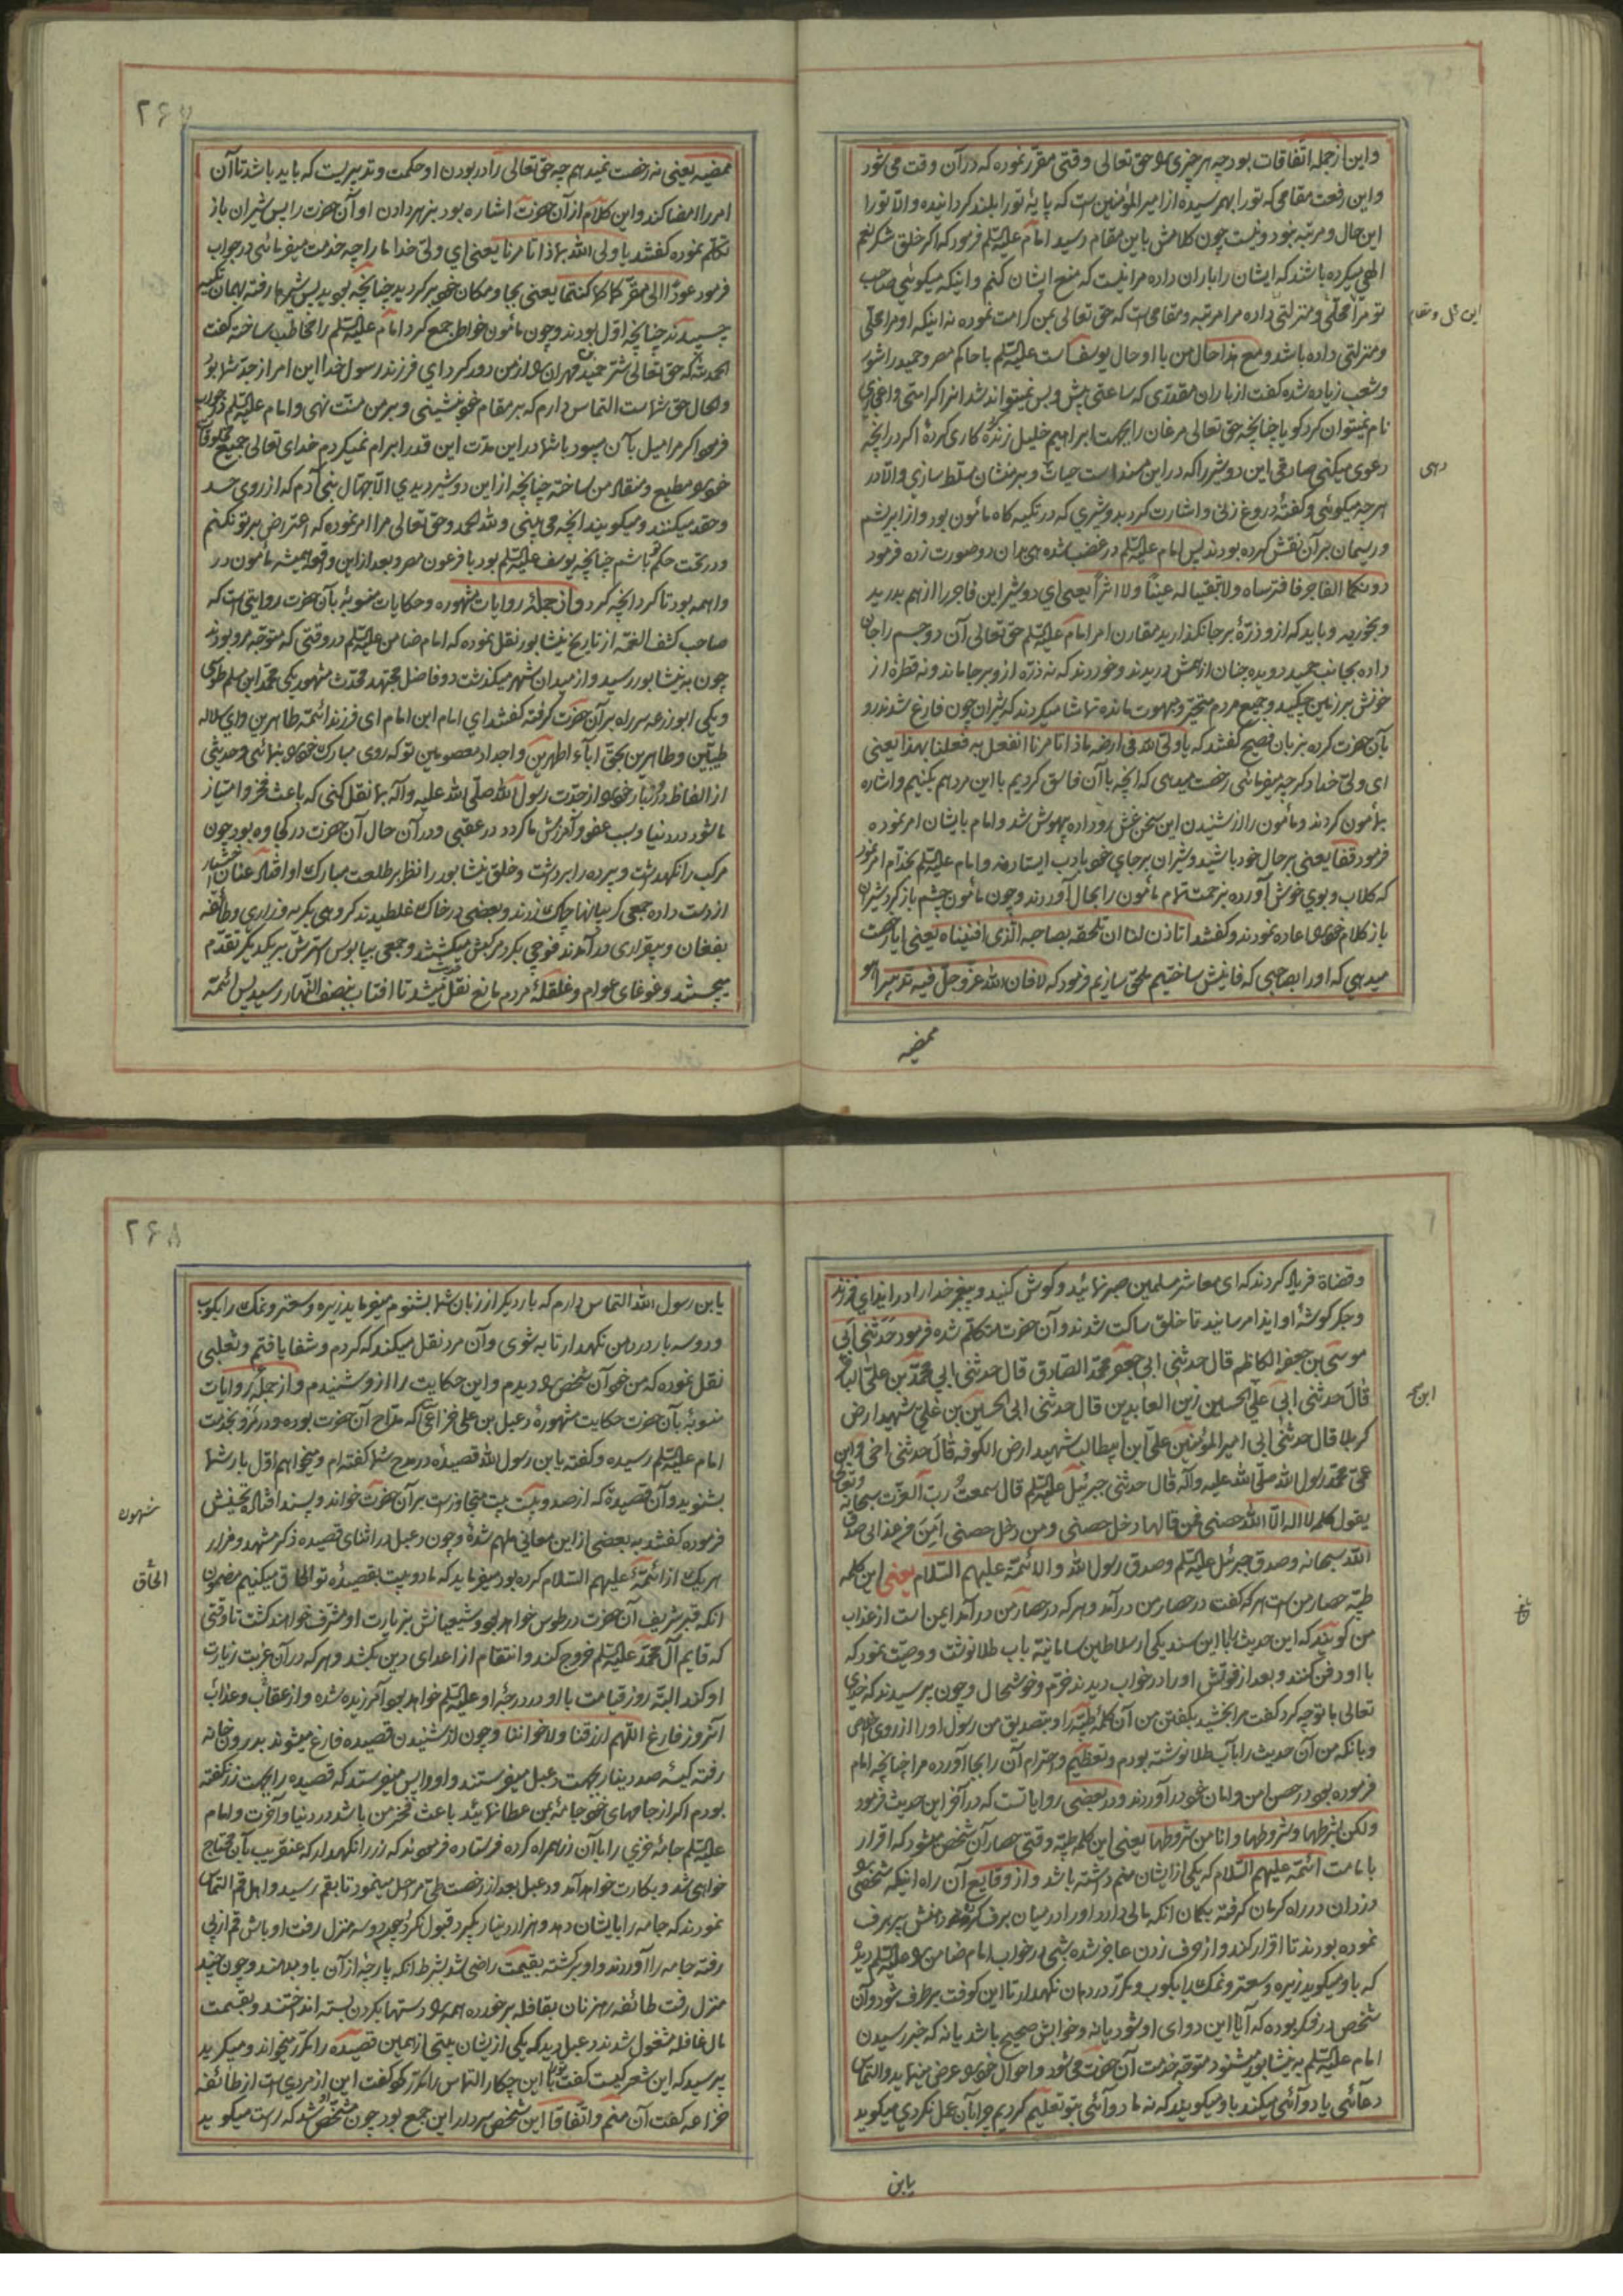 و این از جمله اتفاقات بود چه هر چیزی را حق تعالی وقتی مقرر نموده که در آن وقت می شود
و این رفعت مقامی که تو را بهم رسیده از امیر المؤمنین است که پایهٔ تو را بلند کردانیده و الا تو را
این حال و مرتبه نبود و نیست چون کلامش باین مقام رسید امام علیه السلم فرمود که اکر خلق شکر نعم
الهی میکرده باشند که ایشان را باران داده مرا نیست که منع ایشان کنم و اینکه میکویی صاحب
تو مرا محلی و منزلتی داده مرا مرتبه و مقامی است که حق تعالی بمن کرامت نموده نه اینکه او مرا محلی
این محل و مقام
و منزلتی داده باشد و مع هذا حال من با او حال یوسف است علیه السلم با حاکم مصر و حمید را شور
و شعب زیاده شده کفت از باران مقدری که ساعتی پیش و پس نمیتواند شد انرا کرامتی و اعجازی
نام نمیتوان کرد کویا چنانچه حق تعالی مرغان را بجهت ابراهیم خلیل زنده کرد کاری کردهٔ اکر در انچه
دعوی میکنی صادقی این دو شیر را که در این مسند است حیات و بر منشان مسلط سازی و الا در
دهی
هر چه میکوئی و کفتهٔ دروغ زنی و اشارت کرد بدو شیری که در تکیه کاه مأمون بود و از ابریشم
و ریسمان بر آن نقش کرده بودند پس امام علیه السلم در غضب شده بدان دو صورت زده فرمود
دونکما الفاجر فافترساه ولا تبقیا له عیناً ولا اثراً یعنی ای دو شیر این فاجر را از هم بدرید
و بخورید و باید که ازو ذرهٔ بر جا نکذارید مقارن امر امام علیه السلم حق تعالی آن دو جسم را جان
داده بجانب حمید دویده چنان از همش دریدند و خوردند که نه ذره ازو بر جا ماند و نه قطرهٔ از
خونش بر زمین چکید و جمیع مردم متحیر و مبهوت مانده تماشا میکردند که شیران چون فارغ شدند رو
بآن حضرت کرده بزبان فصیح کفتند که یا ولی الله فی ارضه ماذا تامرنا انفعل به فعلنا بهذا یعنی
ای ولی خدا دکر چه میفرمائی رخصت میدهی که انچه با آن فاسق کردیم با این مرد هم بکنیم و اشاره
بمأمون کردند و مأمون را از شنیدن این سخن غش رو داده بیهوش شد و امام بایشان امر نموده
فرمود قفا یعنی بر حال خود باشید و شیران بر جای خود بادب ایستادند و امام علیه السلم بخدام امر نمود
که کلاب و بوی خوش آورده بزحمت تمام مأمون را بحال آوردند و چون مأمون چشم باز کرد شیران
باز کلام خود را اعاده نمودند و کفتند اتاذن لنا ان نلحقه بصاحبه الذی افنیناه یعنی ایا رخصت
میدهی که او را بصاحبی که فانیش ساختیم ملحق سازیم فرمود که لا فان الله عز و جل فیه تدبیراً هو
ممضیه
۲۶۷
ممضیه یعنی نه رخصت نمیدهم چه حق تعالی را در بودن او حکمت و تدبیریست که باید باشد تا آن
امر را امضا کند و این کلام از آن حضرت اشاره بود بزهر دادن او آن حضرت را پس شیران باز
تکلم نموده کفتند یا ولی الله بماذا تامرنا یعنی ای ولی خدا ما را چه خدمت میفرمائی در جواب
فرمود عودا الی مقرکما کما کنتما یعنی بجا و مکان خود بر کردید چنانچه بودید پس شیرها رفته بهمان تکیه
چسبیدند چنانچه اول بودند و چون مأمون خواطر جمع کرد امام علیه السلم را مخاطب ساخته کفت
الحمد لله که حق تعالی شر حمید بن مهران را از من دور کرد ای فرزند رسول خدا این امر از جد شما بود
و الحال حق شما است التماس دارم که بر مقام خود بنشینی و بر من منت نهی و امام علیه السلم در جواب
فرمود اکر مرا میل بآن میبود با شما در این مدت این قدر ابرام نمیکردم خدای تعالی جمیع مخلوقات
خود را مطیع و منقاد من ساخته چنانچه از این دو شیر دیدی الا جهال بنی آدم که از روی حسد
و حقد میکنند و میکویند انچه می بینی و لله الحمد و حق تعالی مرا امر نموده که اعتراض بر تو نکنم
و در تحت حکم تو باشم چنانچه یوسف علیه السلم بود با فرعون مصر و بعد از این واقعه همیشه مأمون در
واهمه بود تا کرد انچه کرد و از جملهٔ روایات مشهوره و حکایات منسوبهٔ بآن حضرت روایتی است که
صاحب کشف الغمه از تاریخ نیشابور نقل نموده که امام ضامن علیه السلم در وقتی که متوجه مرو بودند
چون به نیشابور رسید و از میدان شهر میکذشت دو فاضل مجتهد محدث مشهور یکی محمد ابن اسلم طوسی
و یکی ابو زرعه سر راه بر آن حضرت کرفته کفتند ای امام ابن امام ای فرزند ائمهٔ طاهرین و ای سلاله
طیبین و طاهرین بحق آباء اطهرین و اجداد معصومین تو که روی مبارک خود را بنمائی و حدیثی
از الفاظ درر بار خود از جدت رسول الله صلی الله علیه وآله بما نقل کنی که باعث فخر و امتیاز
ما شود در دنیا و سبب عفو و آمرزش ما کردد در عقبی و در آن حال آن حضرت در کجاوه بود چون
مرکب را نکهداشت و پرده را برداشت و خلق نیشابور را نظر بر طلعت مبارک او افتاد عنان اختیار
از دست داده جمعی کریبانها چاک زدند و بعضی در خاک غلطیدند کروهی بکریه و زاری و طائفه
بفغان و بیقراری در آمدند فوجی بکرد مرکبش میکشتند و جمعی بپابوس استرش بر یکدیکر تقدم
میجستند و غوغای عوام و غلغلهٔ مردم مانع نقل حدیث میشد تا افتاب بنصف النهار رسید پس ائمه
و قضاة فریاد کردند که ای معاشر مسلمین صبر نمائید و کوش کنید و پیغمبر خدا را در ایذای فرزند
و جکر کوشهٔ او ایذا مرسانید تا خلق ساکت شدند و آن حضرت متکلم شده فرمود حدثنی ابی
موسی ابن جعفر الکاظم قال حدثنی ابی جعفر محمد الصادق قال حدثنی ابی محمد بن علی الباقر
قال حدثنی ابی علی الحسین زین العابدین قال حدثنی ابی الحسین بن علی شهید ارض
ابن
کربلا قال حدثنی ابی امیر المؤمنین علی ابن ابیطالب شهید ارض الکوفه قال حدثنی اخی و ابن
عمی محمد رسول الله صلی الله علیه وآله قال حدثنی جبرئیل علیه السلم قال سمعت رب العزت سبحانه وتعالی
یقول کلمه لا اله الا الله حصنی فمن قالها دخل حصنی ومن دخل حصنی امن من عذابی صدق
الله سبحانه وصدق جبرئیل علیه السلم وصدق رسول الله والائمة علیهم السلام یعنی این کلمه
طیبه حصار من است هر که کفت در حصار من در آمد و هر که در حصار من در آمد ایمن است از عذاب
من کویند که این حدیث را با این سند یکی از سلاطین سامانیه باب طلا نوشت و وصیت نمود که
با او دفن کنند و بعد از فوتش او را در خواب دیدند خرم و خوشحال و چون پرسیدند که خدای
تعالی با تو چه کرد کفت مرا بخشید بکفتن من آن کلمهٔ طیبه را و بتصدیق من رسول او را از روی اخلاص
و بانکه من آن حدیث را بآب طلا نوشته بودم و تعظیم و احترام آن را بجا آورده مرا چنانچه امام
فرموده بود در حصن امن و امان خود در آوردند و در بعضی روایات است که در آخر این حدیث فرمود
ولکن بشرطها وشروطها وانا من شروطها یعنی این کلمه طیبه وقتی حصار آن شخص میشود که اقرار
بامامت ائمه علیهم السلام که یکی از ایشان منم داشته باشد و از وقایع آن راه اینکه شخصی را
دزدان در راه کرمان کرفته بکمان انکه مالی دارد او را در میان برف کرده و دهنش پر برف
نموده بودند تا اقرار کند و از حرف زدن عاجز شده شبی در خواب امام ضامن را علیه السلم دیده
که باو میکوید زیره و سعتر و نمک را بکوب و مکرر در دهان نکهدار تا این کوفت بر طرف شود و آن
شخص در فکر بوده که آیا این دوای او شود یا نه و خوابش صحیح باشد یا نه که خبر رسیدن
امام علیه السلم به نیشابور میشنود متوجه خدمت آن حضرت می شود و احوال خود را عرض مینماید و التماس
دعائی یا دوائی میکند باو میکویند که نه ما دوائی بتو تعلیم کردیم چرا بآن عمل نکردی میکوید
یابن
۲۶۸
یابن رسول الله التماس دارم که بار دیکر از زبان شما بشنوم میفرماید زیره و سعتر و نمک را بکوب
و دو سه بار در دهن نکهدار تا به شوی و آن مرد نقل میکند که کردم و شفا یافتم و ثعلبی
نقل نموده که من خود آن شخص را دیدم و این حکایت را ازو شنیدم و از جملهٔ روایات
منسوبهٔ بآن حضرت حکایت مشهورهٔ دعبل بن علی خزاعی که مداح آن حضرت بوده و در مرو بخدمت
امام علیه السلم رسیده و کفته یابن رسول الله قصیدهٔ در مدح شما کفته ام و میخواهم اول بار شما
بشنوید و آن قصیده که از صد و بیست بیت متجاوز است بر آن حضرت خواند و پسند افتاد تحسینش
فرموده کفتند به بعضی از این معانی ملهم شدهٔ و چون دعبل در اثنای قصیده ذکر مشهد و مزار
هر یک از ائمه علیهم السلام کرده بود میفرماید که ما دو بیت بقصیدهٔ تو الحاق میکنیم مضمون
الحاق
انکه قبر شریف آن حضرت در طوس خواهد بود و شیعیانش بزیارت او مشرف خواهند کشت تا وقتی
که قایم آل محمد علیه السلم خروج کند و انتقام از اعدای دین بکشد و هر که در آن غربت زیارت
او کند البته روز قیامت با او در درجهٔ او علیه السلم خواهد بود آمرزیده شده و از عقاب و عذاب
آنروز فارغ اللهم ارزقنا ولاخواننا و چون از شنیدن قصیده فارغ میشوند بدرون خانه
رفته کیسهٔ صد دینار بجهت دعبل میفرستند و او واپس میفرستد که قصیده را بجهت زر نکفته
بودم اکر از جامهای خود جامهٔ بمن عطا نمائید باعث فخر من باشد در دنیا و آخرت و امام
علیه السلم جامهٔ خزی را با آن زر همراه کرده فرستاده فرمودند که زر را نکهدار که عنقریب بآن محتاج
خواهی شد و بکارت خواهد آمد و دعبل بعد از رخصت طی مراحل مینمود تا بقم رسید و اهل قم التماس
نمودند که جامه را بایشان دهد و هزار دینار بکیرد قبول نکرد چون دو سه منزل رفت اوباش قم از پی
رفته جامه را آوردند و او بر کشته بقیمت راضی شد بشرط انکه پارچهٔ از آن باو بدهند و چون چند
منزل رفت طائفه رهزنان بقافله بر خورده همه را دستها بکردن بسته انداختند و بقسمت
مال قافله مشغول شدند دعبل دید که یکی از یشان بیتی از همین قصیده را مکرر میخواند و میکرید
پرسید که این شعر کیست کفت ترا با این چکار التماس را مکرر کرد کفت این از مردی است از طائفه
خزاعه کفت آن منم و اتفاقا این شخص سردار این جمع بود چون مشخص او شد که راست میکوید